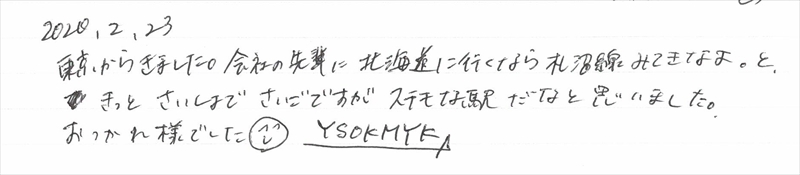 2020.2.23
東京からきました。会社の先輩に北海道に行くなら札沼線みてきなよ。と、
きっとさいしょでさいごですがステキな駅だなと思いました。
おつかれ様でした YSOKMYK